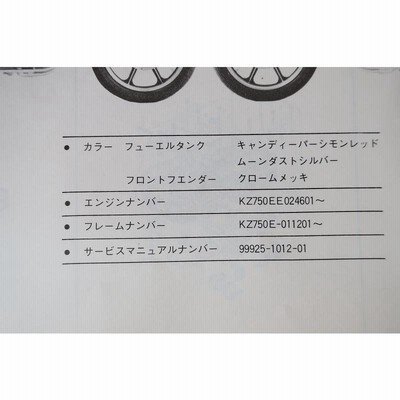 ● カラー フューエルタンク キャンディーパーシモンレッド
ムーンダストシルバー
フロントフエンダー クロームメッキ
● エンジンナンバー KZ750EE024601〜
● フレームナンバー KZ750E-011201〜
● サービスマニュアルナンバー 99925-1012-01